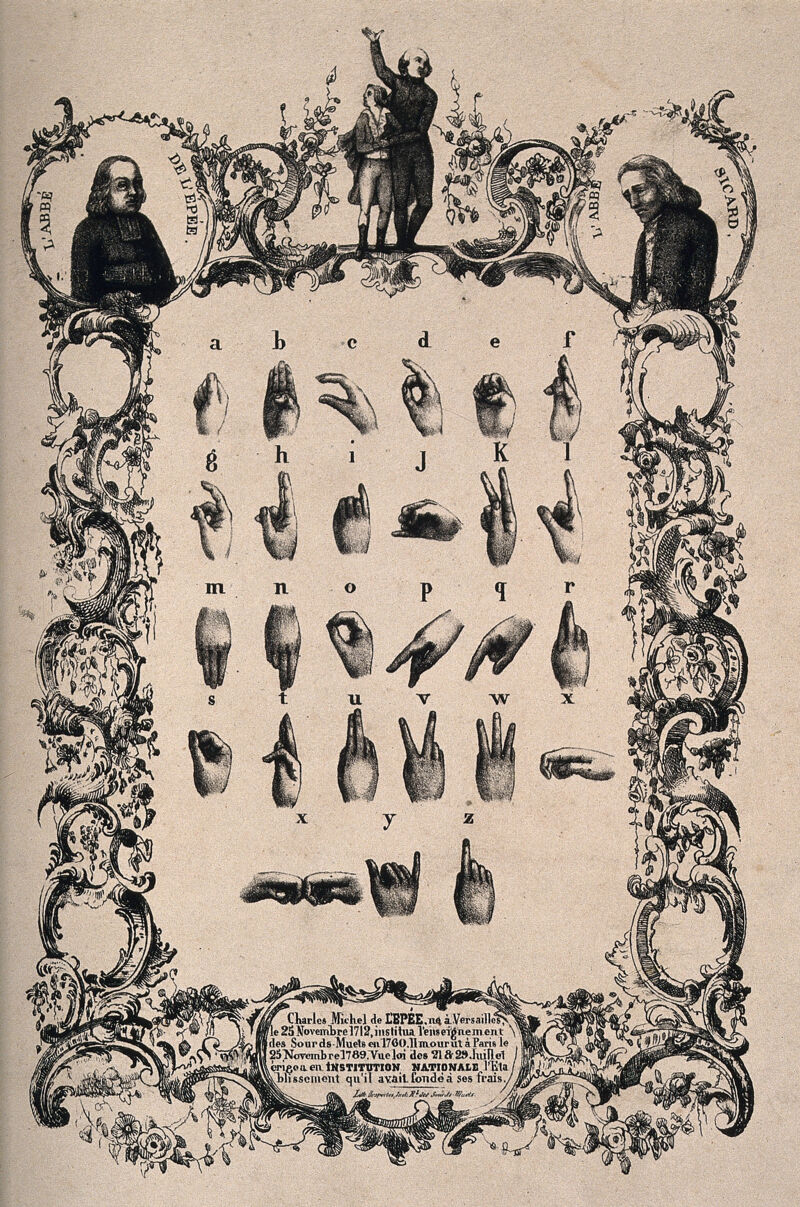 L'ABBÉ DE L'EPÉE.
L'ABBÉ SICARD.
a b c d e f
g h i J K l
m n o p q r
s t u v w x
x y z
Charles Michel de L'EPÉE, né à Versailles,
le 25 Novembre 1712, institua l'enseignement
des Sourds-Muets en 1760. Il mourut à Paris le
25 Novembre 1789. Vue loi des 21 & 29. Juillet
érigea en INSTITUTION NATIONALE l'Eta
blissement qu'il avait fondé à ses frais.
Lith. Desportes, Inst. Rl. des Sourds-Muets.